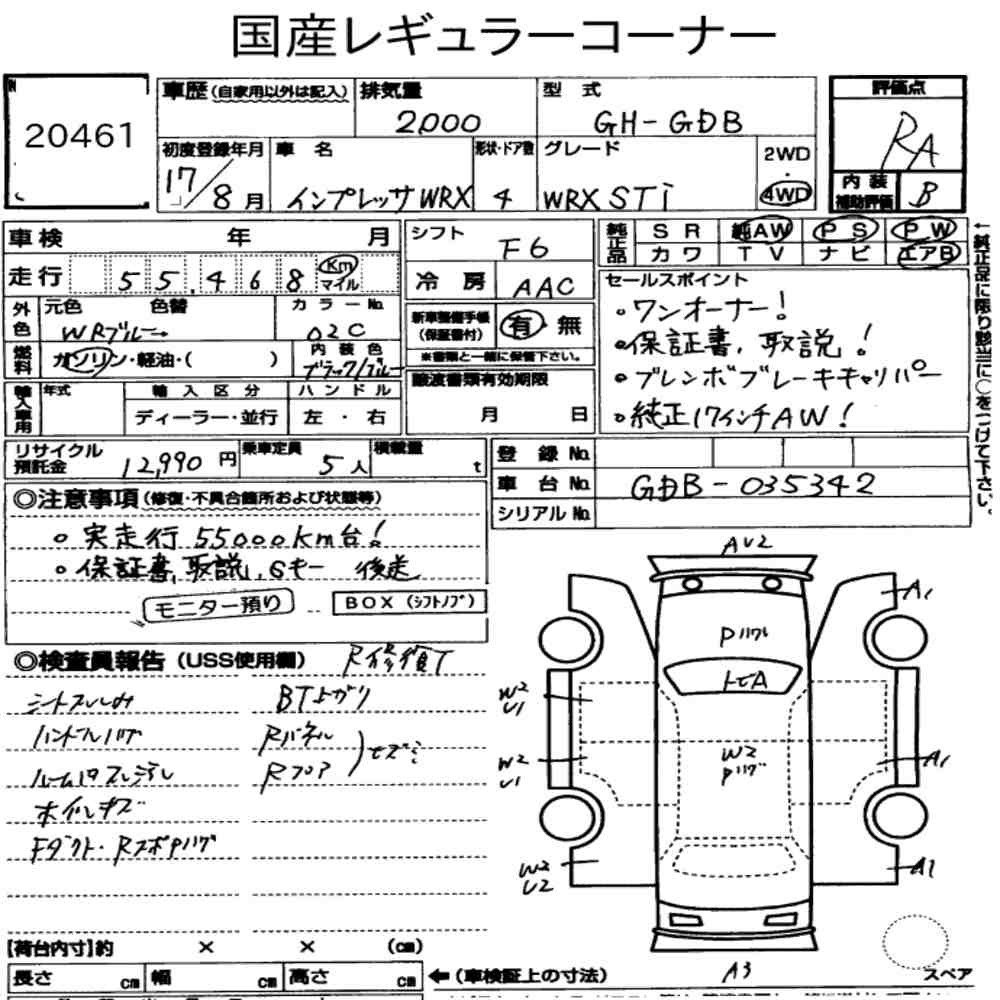 国産レギュラーコーナー
20461
車歴 (自家用以外は記入) 排気量 2,000 型式 GH-GDB 評価点 RA
初度登録年月 17/8月 車名 インプレッサWRX 形状・ドア数 4 グレード WRX STi 2WD・4WD
内装補助評価 B
車検 年 月 シフト F6 純正品 SR 純AW PS PW
カワ TV ナビ エアB
走行 55,468 Km マイル 冷房 AAC
セールスポイント
・ワンオーナー!
・保証書、取説!
・ブレンボブレーキキャリパー
・純正17インチAW!
外色 元色 WRブルー 色替 カラーNo. 02C
新車整備手帳(保証書付) 有・無
※書類と一緒に保管下さい。
燃料 ガソリン・軽油・( ) 内装色 ブラック/ブルー
譲渡書類有効期限 月 日
輸入車用 年式 輸入区分 ディーラー・並行 ハンドル 左・右
リサイクル預託金 12,990円 乗車定員 5人 積載量 t
登録No.
車台No. GDB-035342
シリアルNo.
←純正品に限り該当に○をつけて下さい。
◎注意事項 (修復・不具合箇所および状態等)
・実走行55000km台!
・保証書、取説、Sキー 後送
モニター預り BOX(シフトノブ)
◎検査員報告 (USS使用欄) R修復T
シートスレシミ BT上がり
Rパネル
Rフロア
ホイルキズ
AU2
A1
Pハゲ
W2
U1
W2
U1
W2
Pハゲ
A1
W2
U2
A1
A3
スペア
[荷台内寸]約 × × (cm)
長さ cm 幅 cm 高さ cm ←(車検証上の寸法)